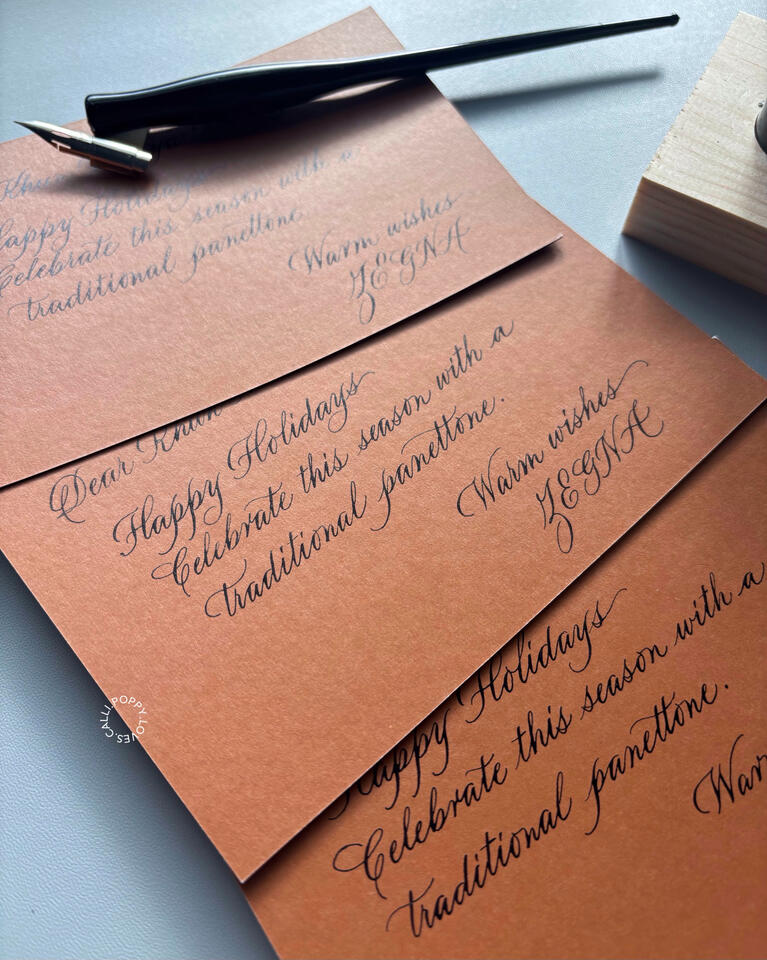 Khun
Happy Holidays
Celebrate this season with a
traditional panettone
Warm wishes
ZEGNA
Dear Khun
Happy Holidays
Celebrate this season with a
traditional panettone.
Warm wishes
ZEGNA
Happy Holidays
Celebrate this season with a
traditional panettone.
War
CALLI.POPPY.LOVES.